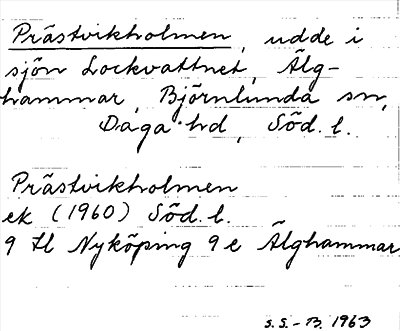 Prästvikholmen, udde i
sjön Lockvattnet, Älg-
hammar, Björnlunda sn,
Daga hd, Söd. l.
Prästvikholmen
ek (1960) Söd. l.
9 H Nyköping 9 e Älghammar
S.S.-B. 1963